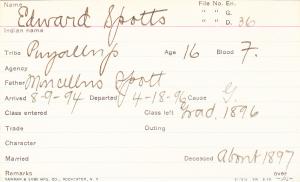 Name Edward Spotts File No. En. G.
Indian name " " D. 36
Tribe Puyallup Age 16 Blood F.
Agency
Father Marcellus Spott
Arrived 8-9-94 Departed 4-18-96 Cause G.
Class entered Class left Grad. 1896
Trade Outing
Character
Married Deceased About 1897
Remarks over